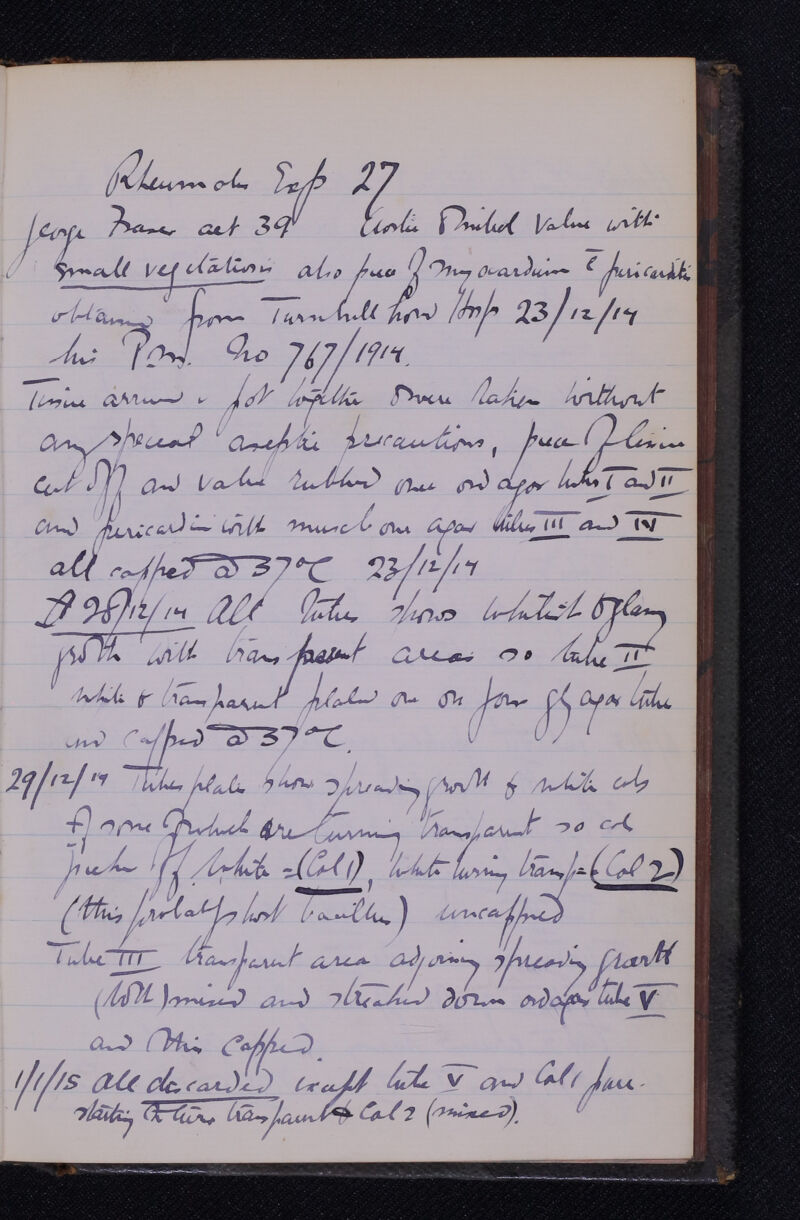 Rheumatis Exp 27
George Fraser aet 39 Aortic & Mitral Valve with
small vegetations also piece of myocardium c̄ pericarditis
obtained from Turnbull Lond Hosp 23/12/14
his P.M. No 767/1914.
Tissue arrived in pot together & were taken without
any special aseptic precautions, piece of tissue
cut off and valve rubbed over ord agar tubes I and II
and pericardium with muscle over agar tubes III and IV
all capped @ 37°C 23/12/14
28/12/14 All tubes shows whitish & glassy
growth with transparent areas so tube II
white & transparent plated out on four gly agar tube
and capped @ 37°C.
29/12/14 Tubes plates show spreading growth & white cols
some of which are turning transparent so cols
picked off White = (Col 1), White turning transp = (Col 2)
(this probably short bacillus) uncapped
Tube III transparent area adjoining spreading growth
(both) mixed and streaked down ord agar tube V
and this capped.
1/1/15 All discarded except tube V and Col 1 pure.
starting to turn transparent & Col 2 (mixed).